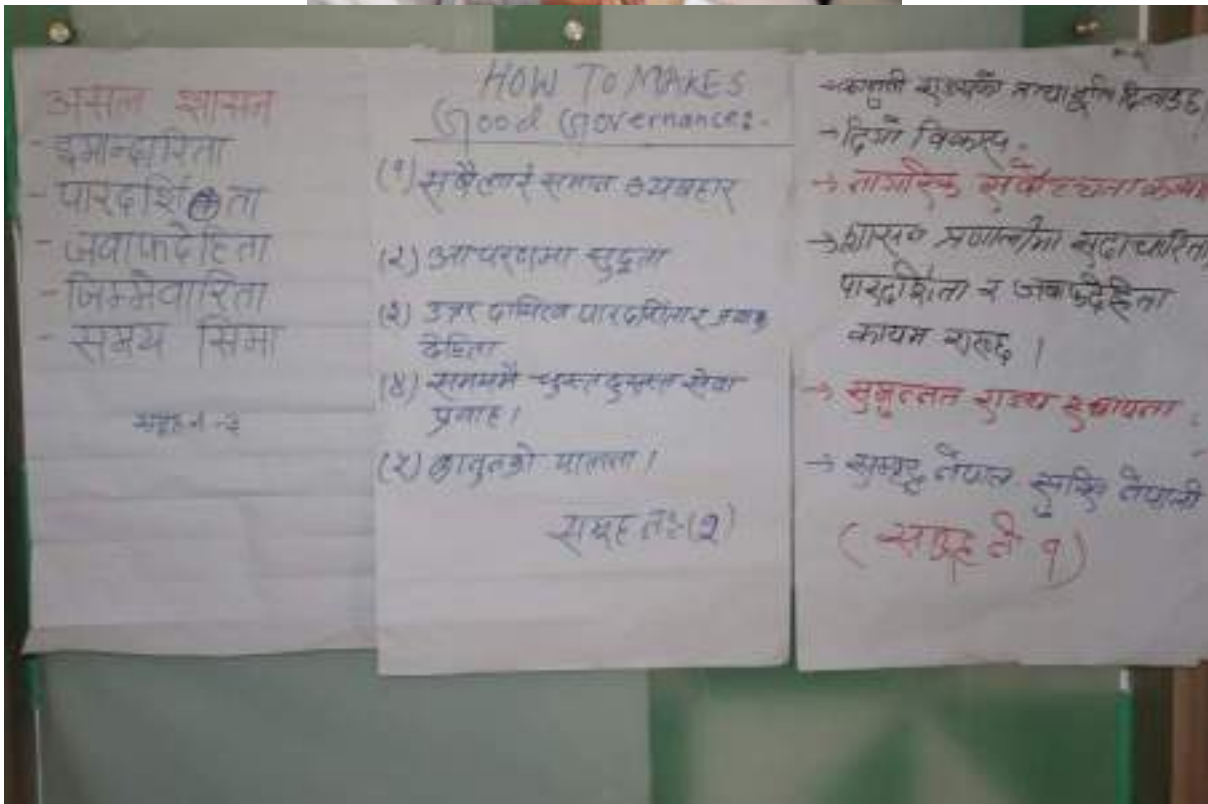 असल शासन
- इमान्दारिता
- पारदर्शिता
- जवाफदेहिता
- जिम्मेवारिता
- समय सिमा
समूह नं -२
HOW TO MAKES
Good Governance:-
(१) सबैलाई समान व्यवहार
(२) आचरणमा सुद्धता
(३) उत्तर दायित्व पारदर्शिता र जवाफ
देहिता
(४) समयमै चुस्त दुरुस्त सेवा
प्रवाह ।
(५) कानुनको पालना ।
समूह नं:-(३)
→ कानुनी राज्यको दिलाउछ
→ दिगो विकास .
→ नागरिक सर्वोच्चता कायम
→ शासन प्रणालीमा सदाचारिता,
पारदर्शिता र जवाफदेहिता
कायम राख्छ ।
→ राज्य स्थापना .
→ समृद्ध नेपाल सुखि नेपाली
(समूह नं १)